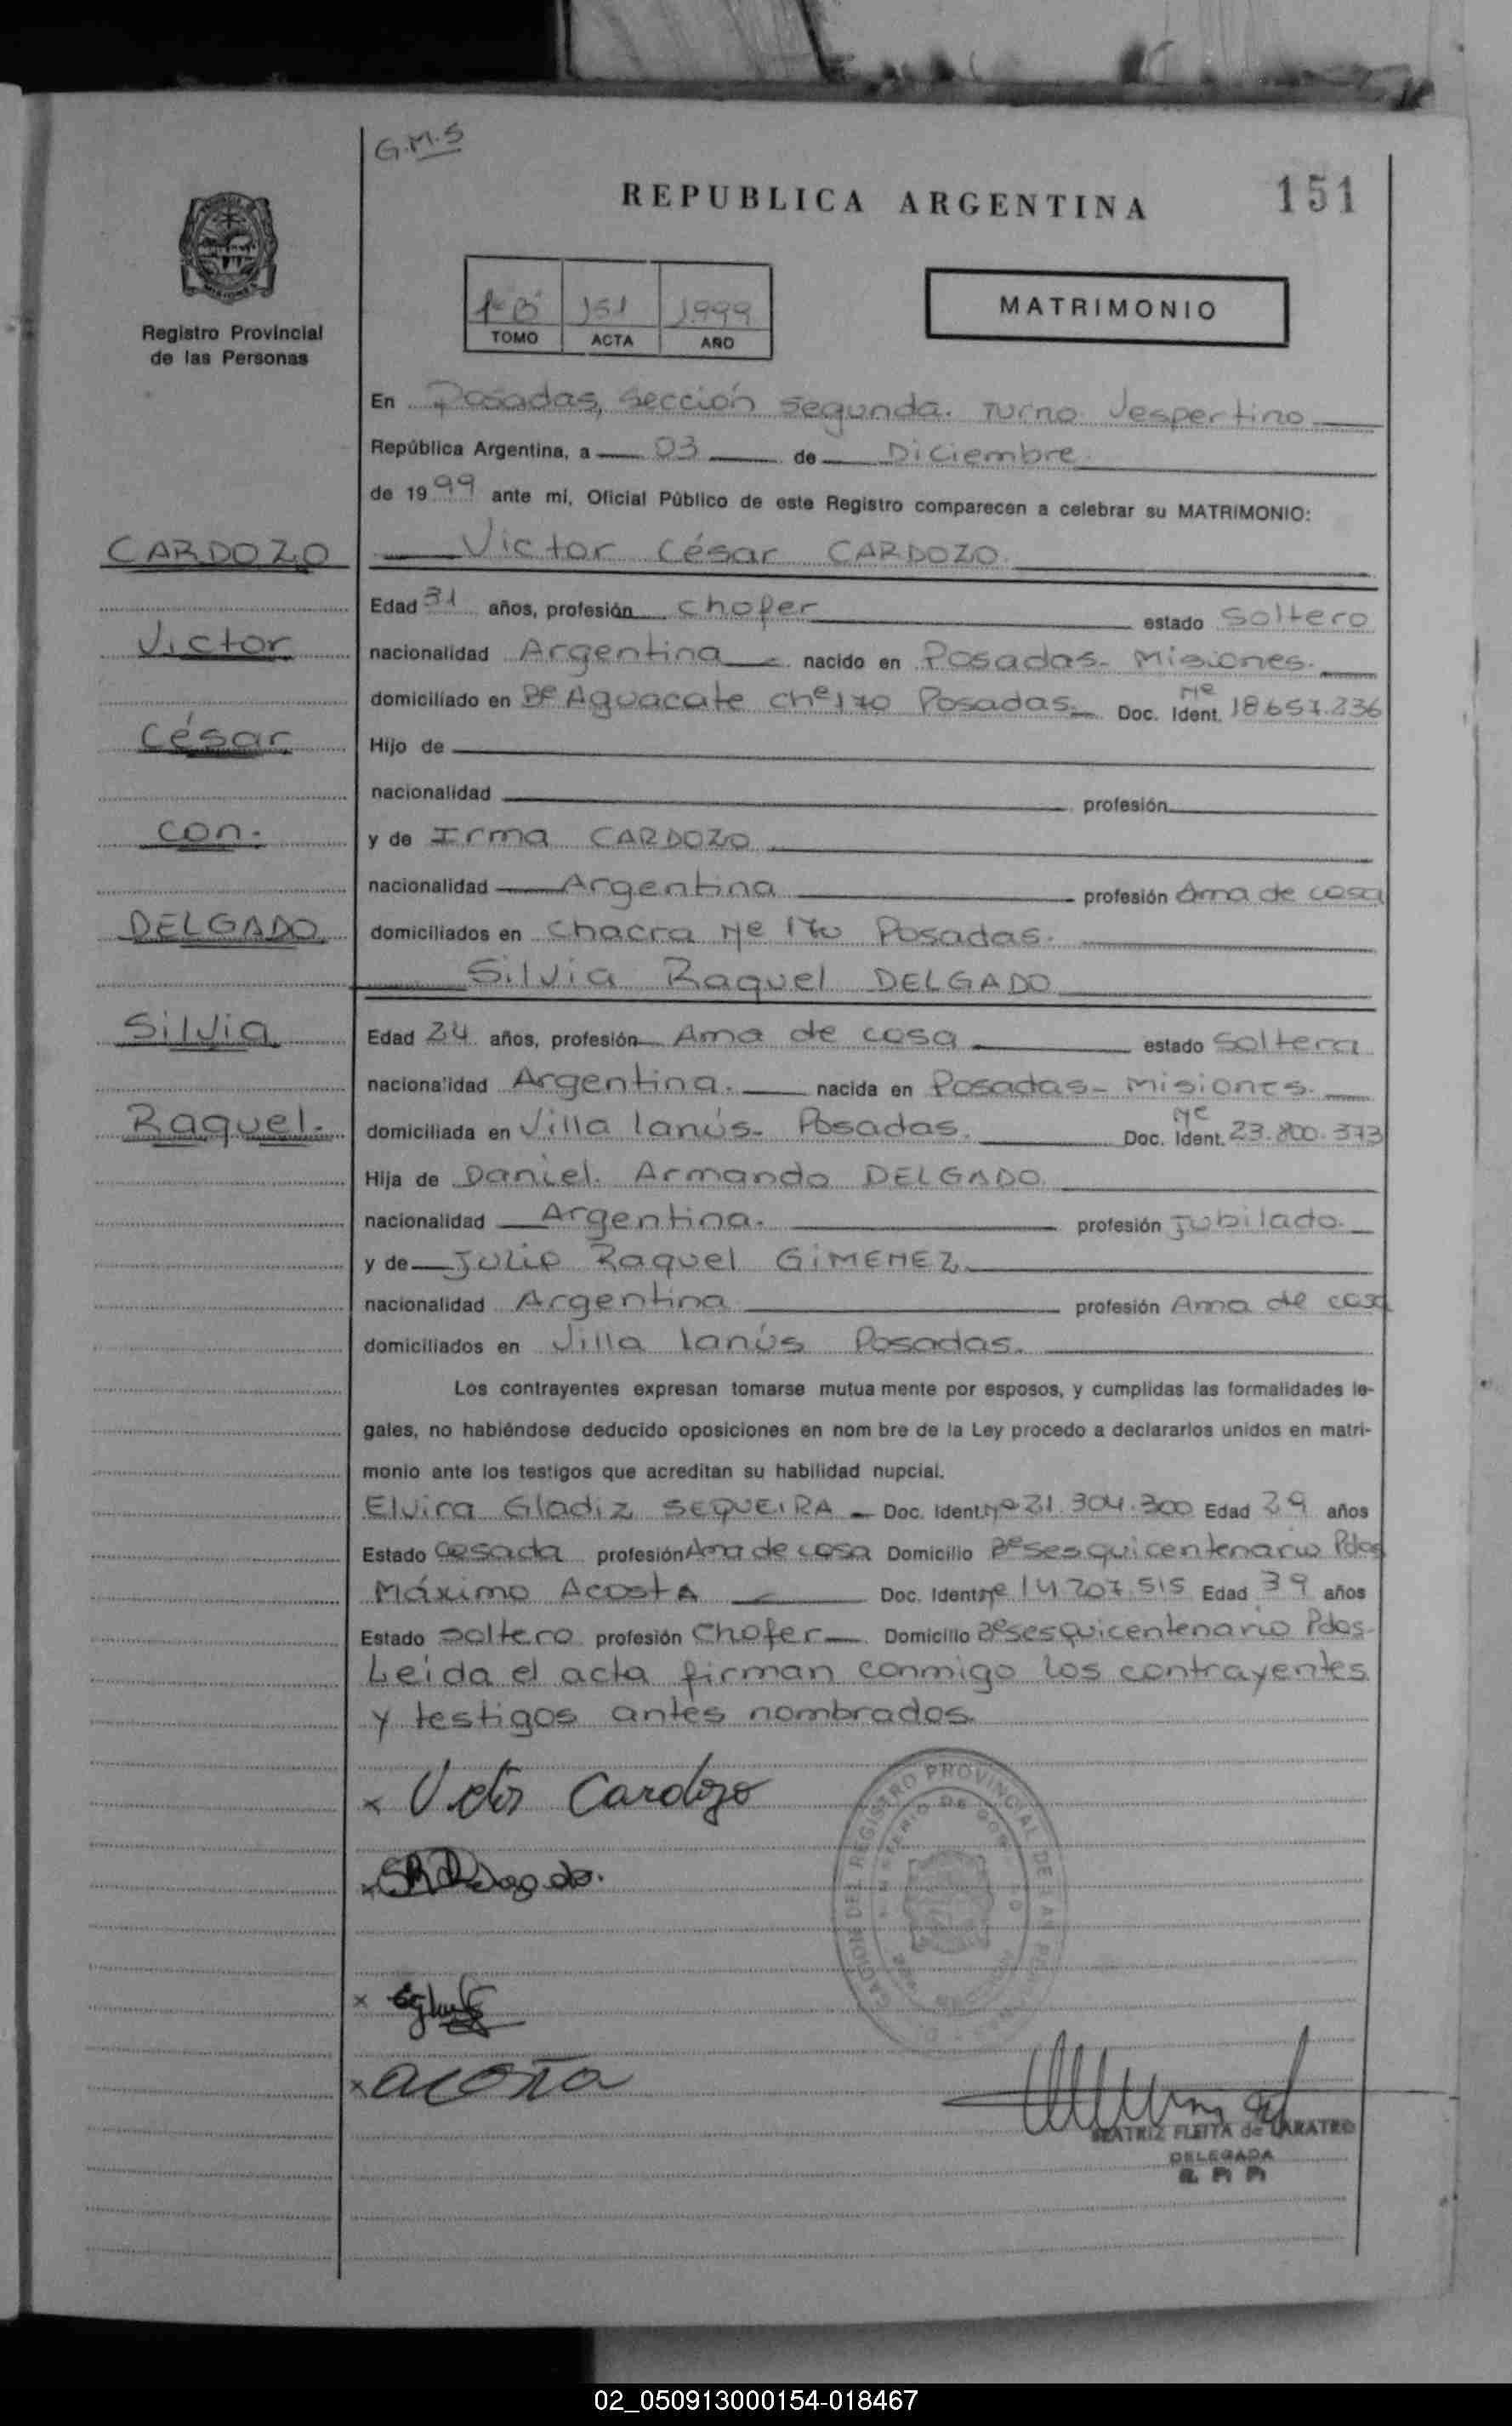 G.M.S
REPUBLICA ARGENTINA
151
Registro Provincial
de las Personas
1º B 151 1999
TOMO ACTA AÑO
MATRIMONIO
En Posadas, sección segunda. Turno Vespertino
República Argentina, a 03 de Diciembre
de 1999 ante mí, Oficial Público de este Registro comparecen a celebrar su MATRIMONIO:
CARDOZO
Victor César CARDOZO
Edad 31 años, profesión chofer estado soltero
Victor
nacionalidad Argentina nacido en Posadas- Misiones.
domiciliado en Bº Aguacate chº 170 Posadas. Doc. Ident. Nº 18.657.236
César
Hijo de
nacionalidad profesión
con.
y de Irma CARDOZO
nacionalidad Argentina profesión Ama de casa
DELGADO
domiciliados en Chacra Nº 170 Posadas.
Silvia Raquel DELGADO
Silvia
Edad 24 años, profesión Ama de casa estado soltera
nacionalidad Argentina. nacida en Posadas- Misiones.
Raquel.
domiciliada en Villa lanús- Posadas. Doc. Ident. Nº 23.800.373
Hija de Daniel Armando DELGADO
nacionalidad Argentina. profesión Jubilado.
y de Julia Raquel GIMENEZ
nacionalidad Argentina profesión Ama de casa
domiciliados en Villa lanús Posadas.
Los contrayentes expresan tomarse mutua mente por esposos, y cumplidas las formalidades le-
gales, no habiéndose deducido oposiciones en nom bre de la Ley procedo a declararlos unidos en matri-
monio ante los testigos que acreditan su habilidad nupcial.
Elvira Gladiz SEQUEIRA - Doc. Ident. Nº 21.304.300 Edad 29 años
Estado casada profesión Ama de casa Domicilio Bº sesquicentenario Pdas
Máximo ACOSTA Doc. Ident. Nº 14.207.515 Edad 39 años
Estado soltero profesión Chofer Domicilio Bº sesquicentenario Pdas-
Leída el acta firman conmigo los contrayentes
y testigos antes nombrados.
x Victor Cardozo
x SRDelgado.
x
x acosta
REGISTRO PROVINCIAL DE LAS
BEATRIZ FLEITA de LARATRO
DELEGADA
02_050913000154-018467